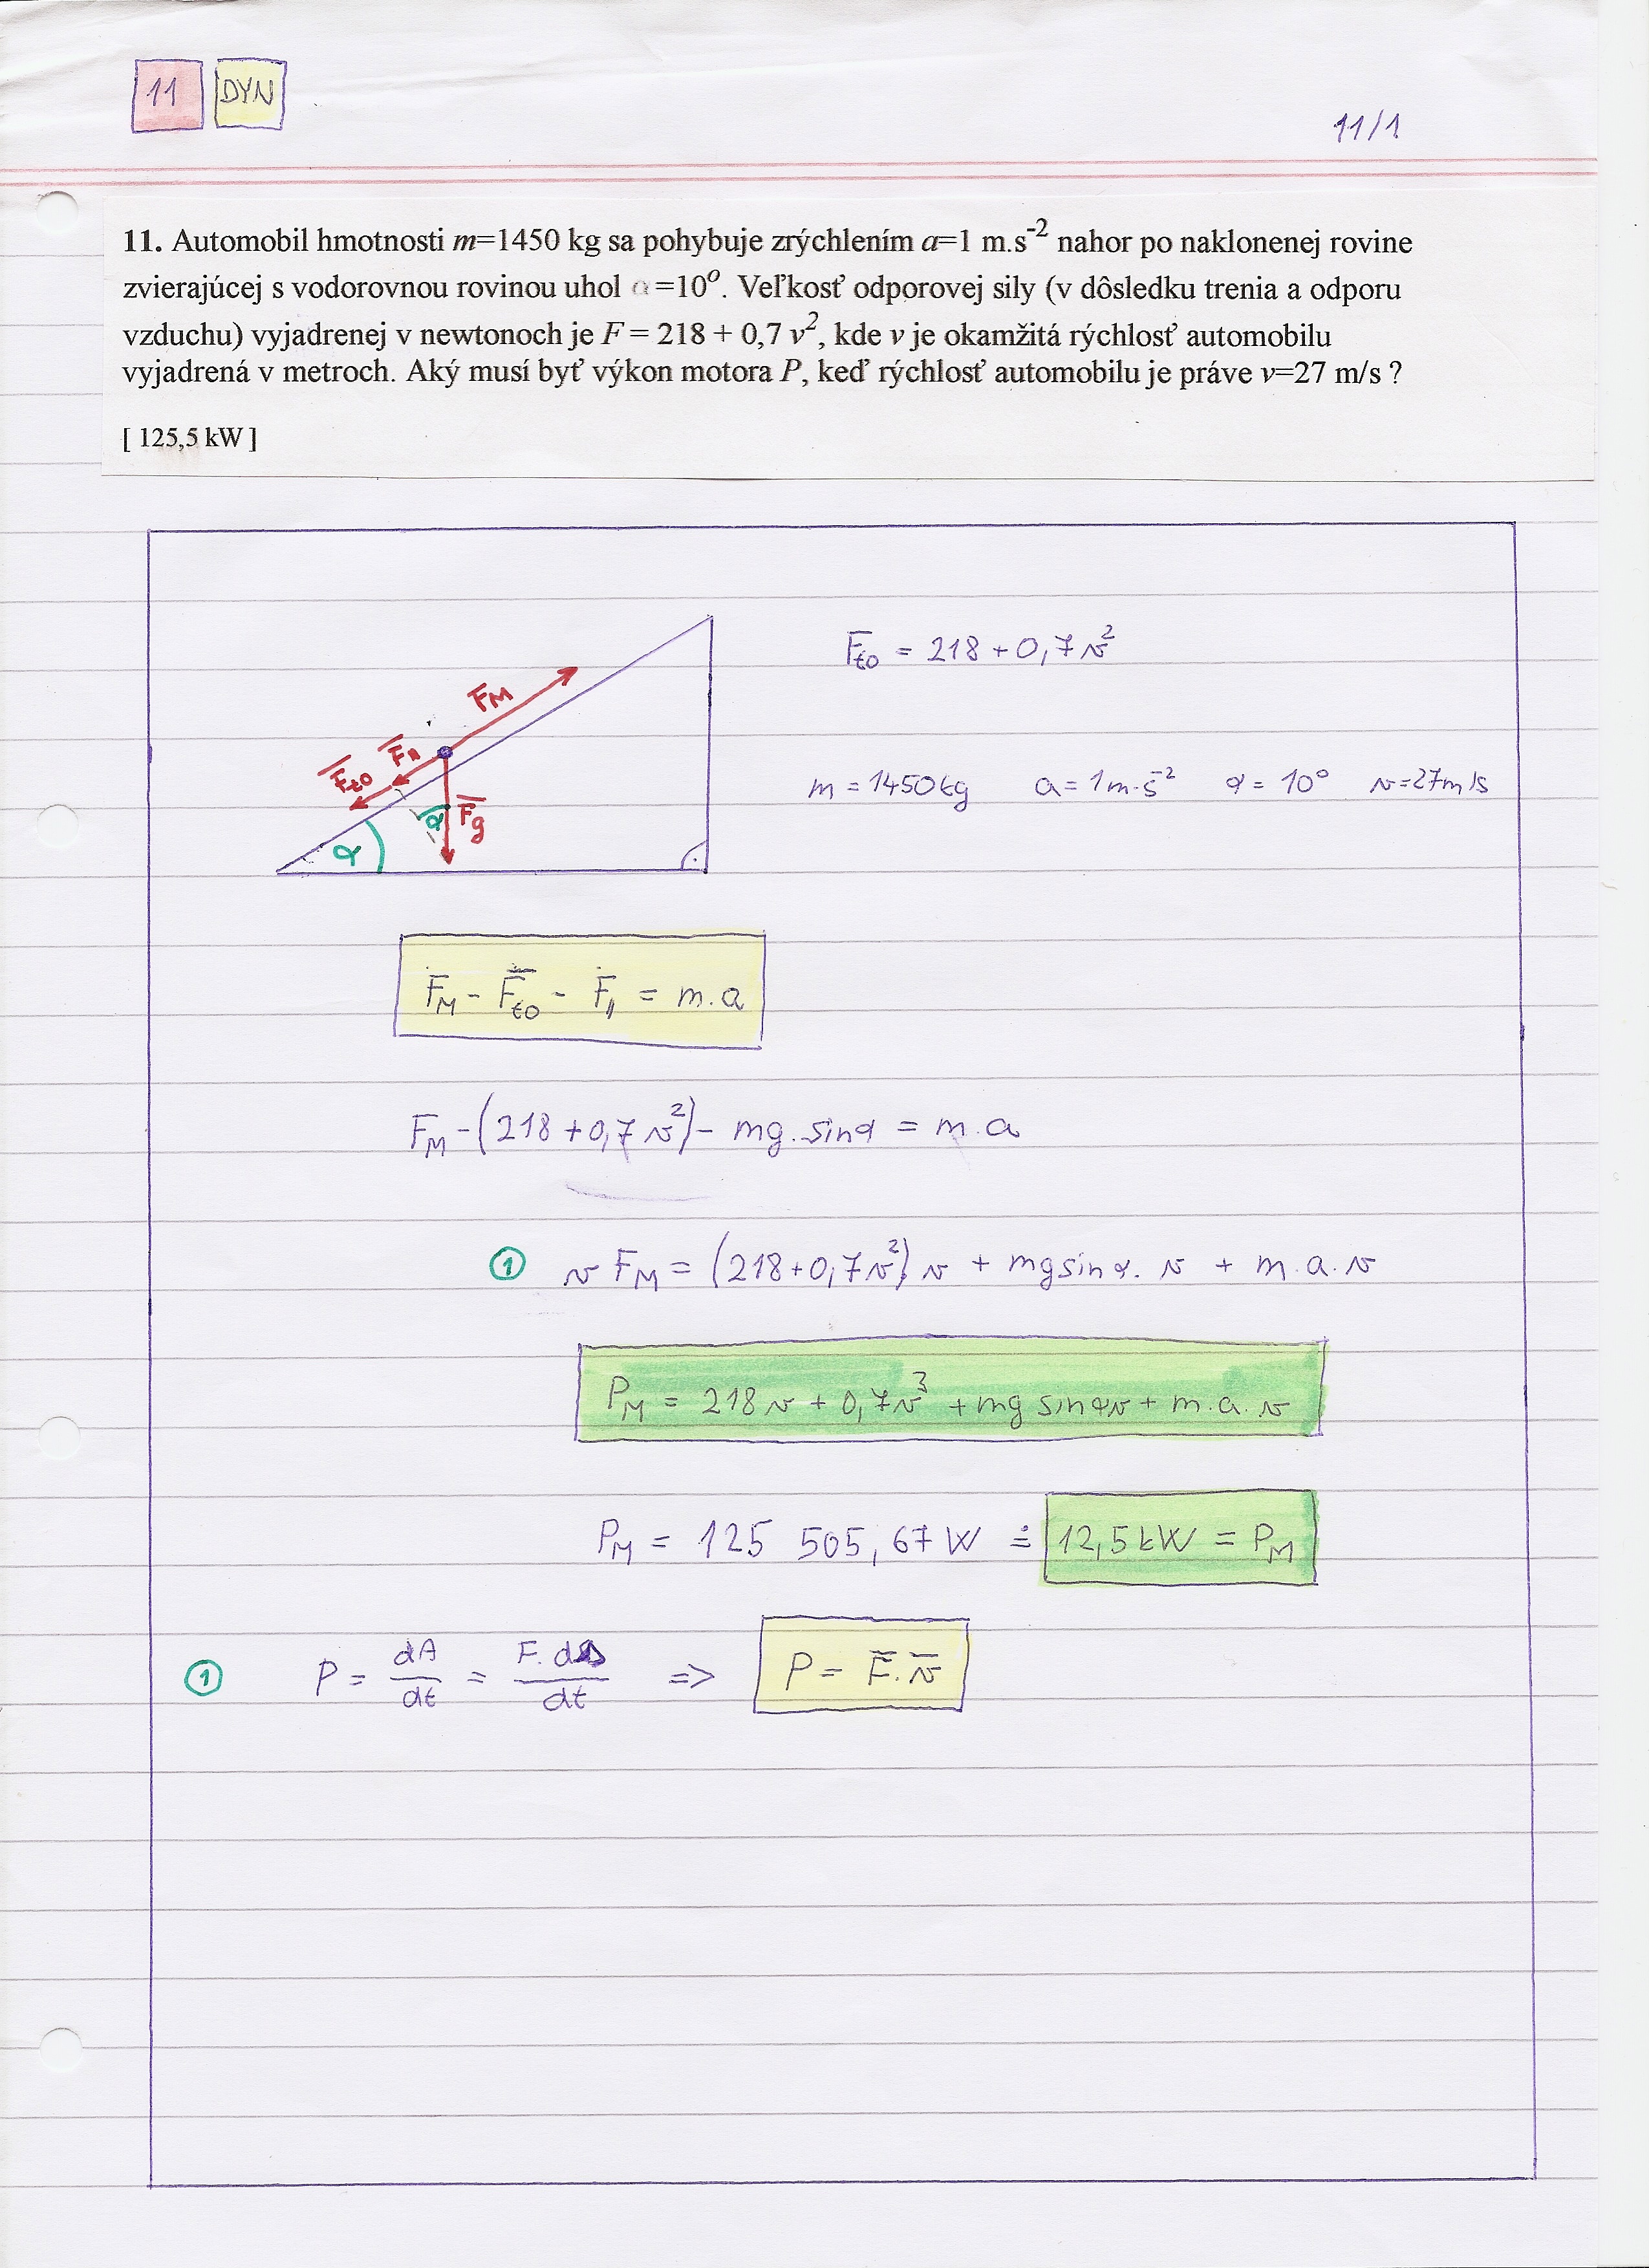 11 DYN
11/1
11. Automobil hmotnosti m=1450 kg sa pohybuje zrýchlením a=1 m.s⁻² nahor po naklonenej rovine
zvierajúcej s vodorovnou rovinou uhol α=10°. Veľkosť odporovej sily (v dôsledku trenia a odporu
vzduchu) vyjadrenej v newtonoch je F = 218 + 0,7 v², kde v je okamžitá rýchlosť automobilu
vyjadrená v metroch. Aký musí byť výkon motora P, keď rýchlosť automobilu je práve v=27 m/s ?
[ 125,5 kW ]
F̅to = 218 + 0,7v²
F̅M
F̅to F̅₁₁
α F̅g
α
m = 1450kg a = 1m·s⁻² α = 10° v=27m/s
F̅M - F̅to - F̅₁₁ = m.a
FM - (218 + 0,7v²) - mg.sinα = m.a
① v FM = (218+0,7v²).v + mgsinα. v + m.a.v
PM = 218v + 0,7v³ + mg sinαv + m.a.v
PM = 125 505,67 W ≐ 12,5kW = PM
① P = dA/dt = F.ds/dt => P = F̅.v̅